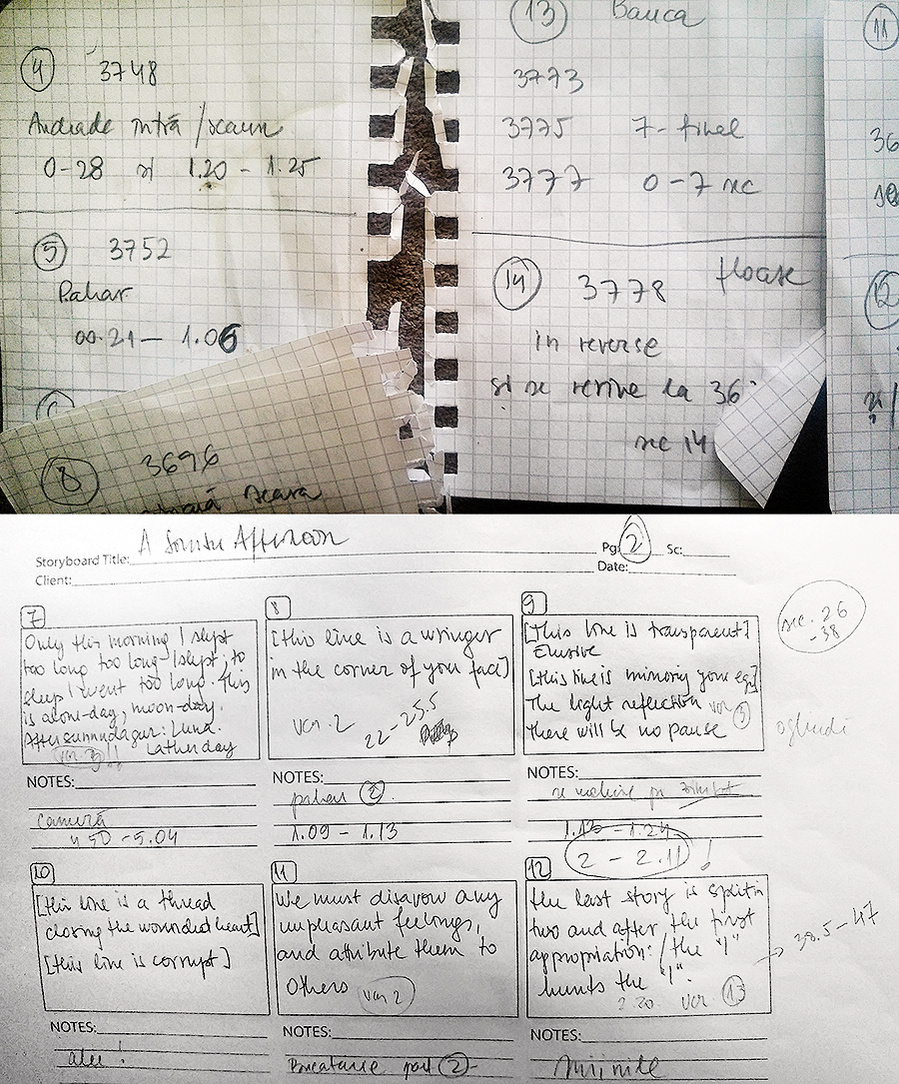 4 3748
Andrade intră / scaun
0-28 și 1.20 - 1.25
5 3752
Pahar
00.21 - 1.06
8 3696
scara
13 Banca
3773
3775 7- final
3777 0-7 sec
14 3778 floare
in reverse
și se revine la 36
sec 14
11
36
12
Storyboard Title: A Afternoon
Pg: 2 Sc:
Client:
Date:
7
Only this morning I slept
too long too long I slept, to
sleep I went too long. This
is alone-day, moon-day.
Luna.
Latherday
NOTES:
camera
4.50 - 5.04
8
[this line is a wringer
in the corner of your face]
ver. 2
22-25.5
NOTES:
pahar 2
1.09 - 1.13
9
[This line is transparent]
Elusive
[this line is mimory your ego]
The light reflection
there will be no pause
sec. 26
-38
oglindi
NOTES:
1.13 - 1.24
2 - 2.11 !
10
[this line is a thread
closing the wounded heart]
[this line is corrupt]
NOTES:
alee!
11
We must disavow any
unpleasant feelings,
and attribute them to
others
ver 2
NOTES:
2
12
the last story is split in
two and after the first
appropriation: / the "I"
hunts the "I".
2.20. ver 13
38.5-47
NOTES: